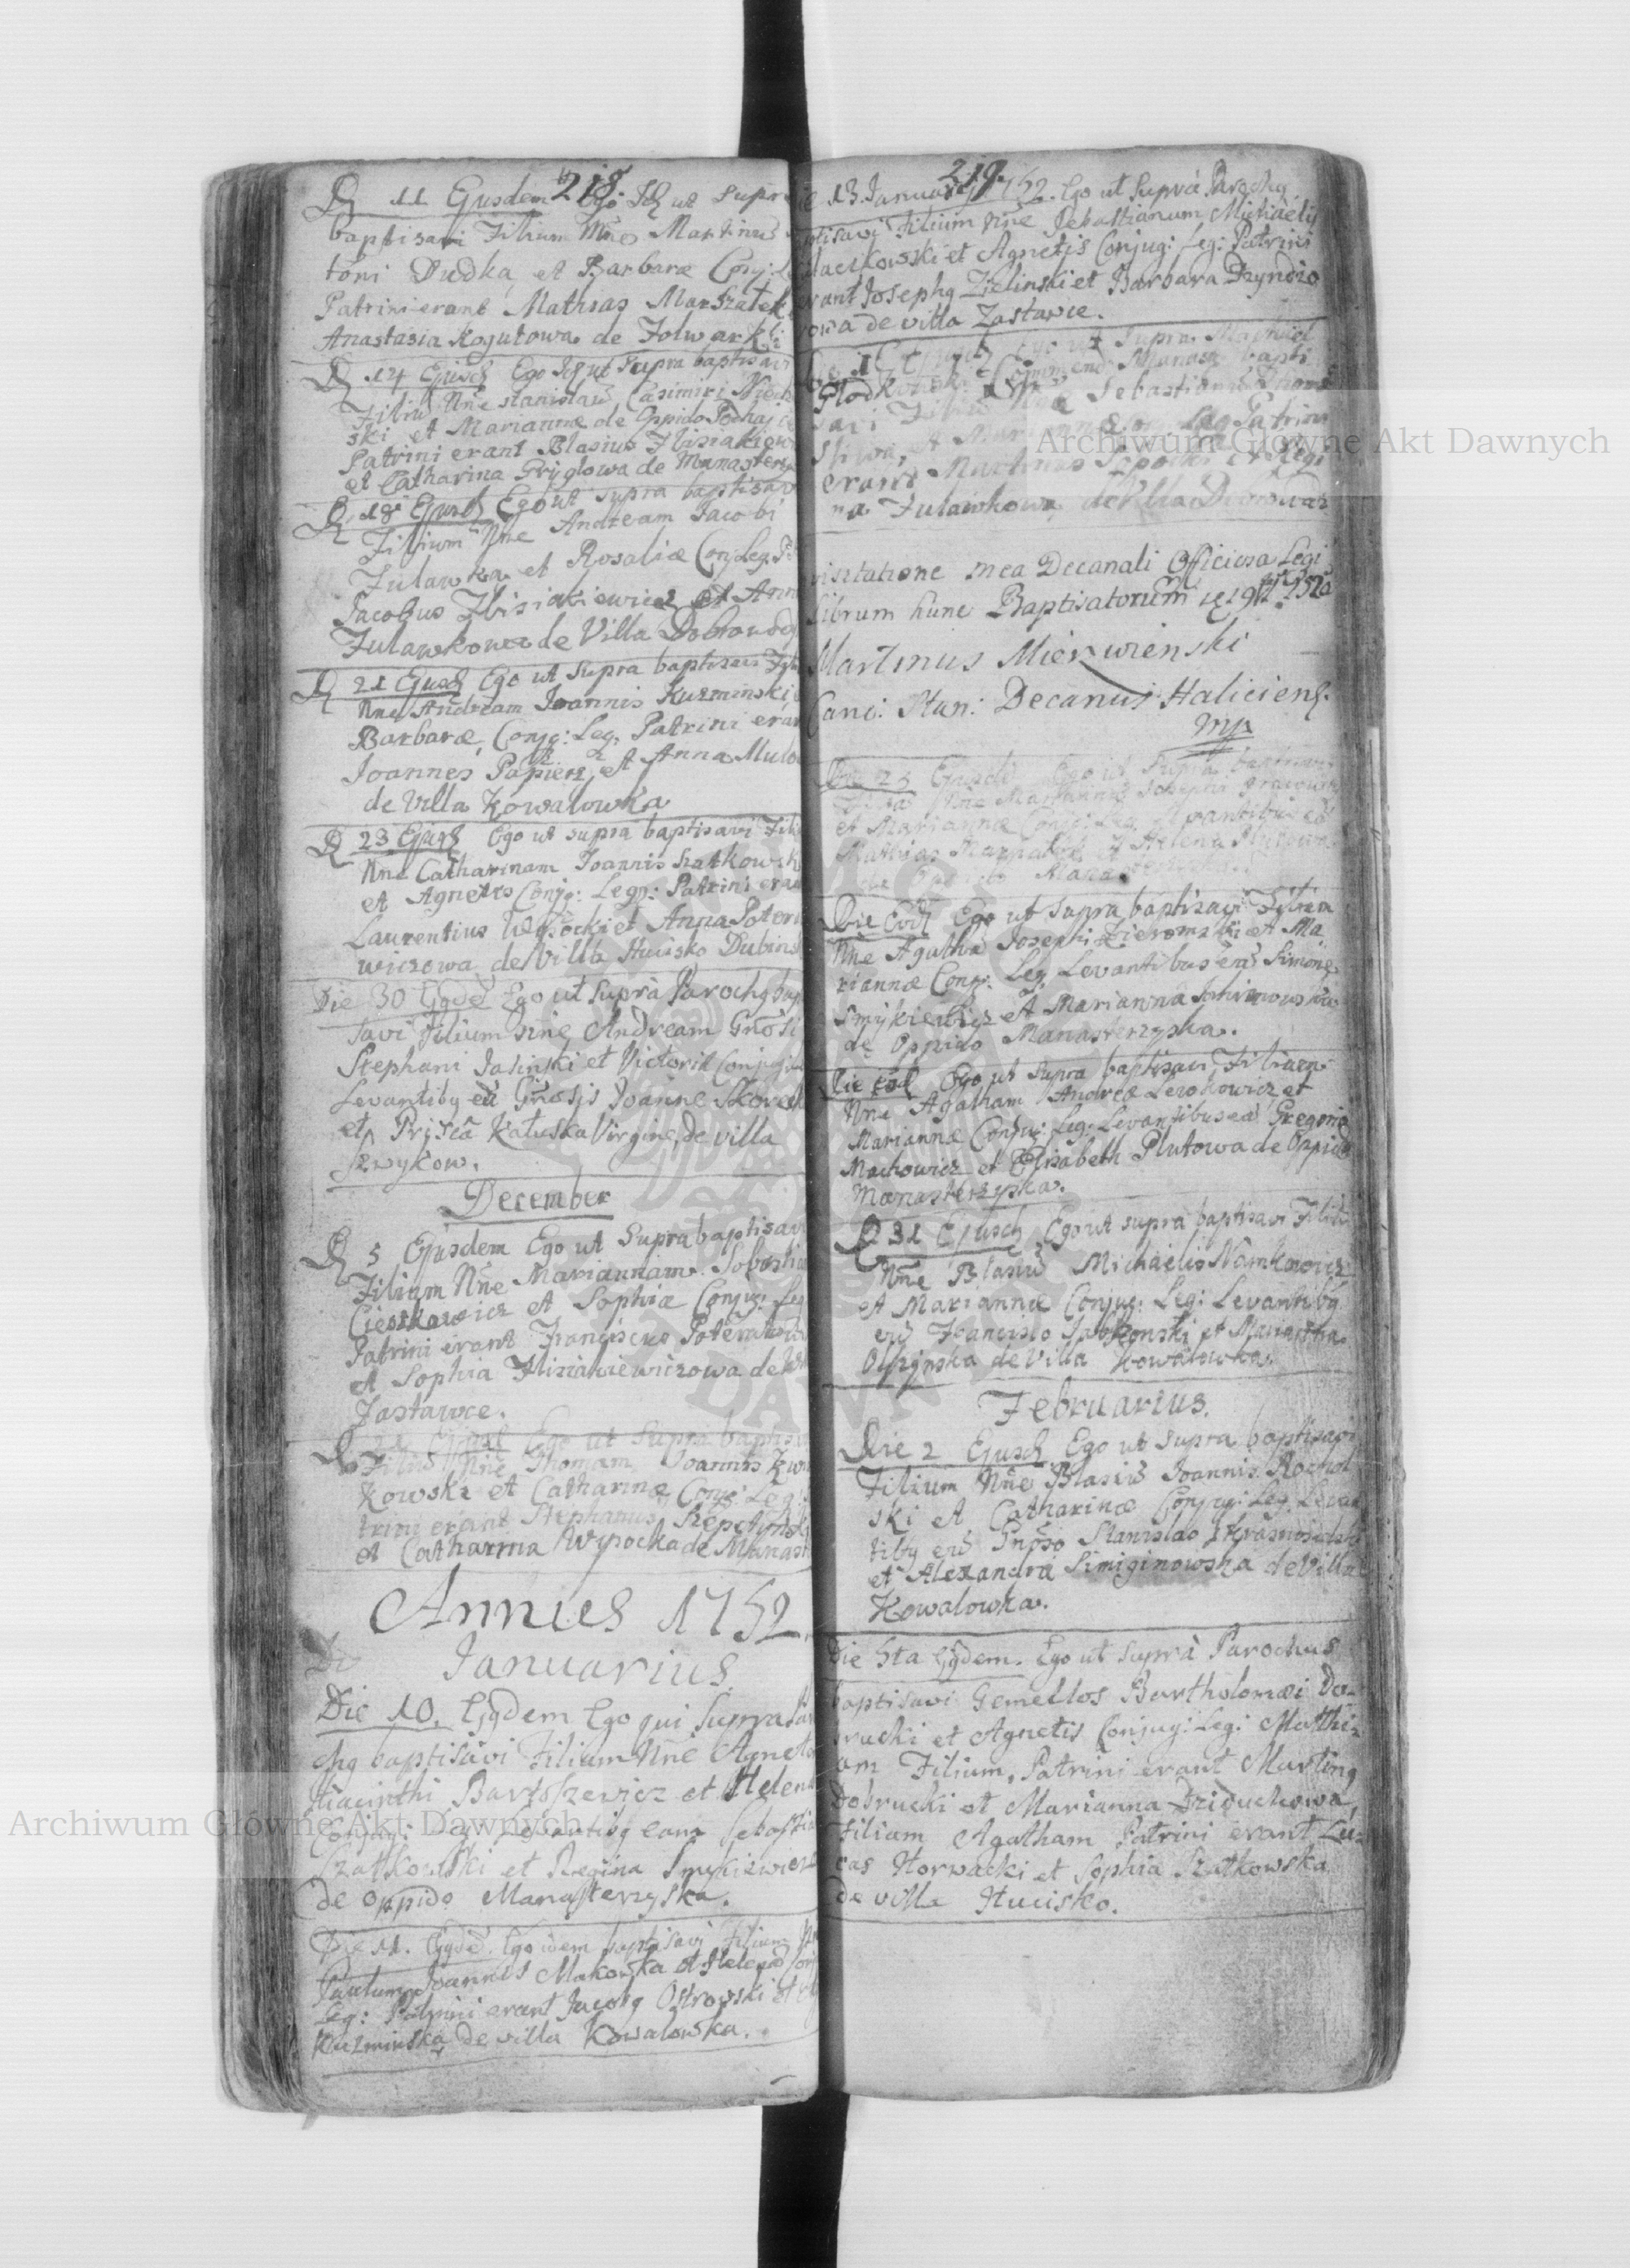 218.
D 11 Ejusdem Ego Id ut supr
baptisavi Filium Nne Martinu
toni Dudka, et Barbaræ Conj: Le
Patrini erant Mathias Marszałek
Anastasia Kogutowa de Folwarki
D 14 Ejusd Ego Id ut supra baptisavi
Filiu Nne Stanislau Casimiri
ski et Mariannæ de Oppido Podhaj
Patrini erant Blasius
et Catharina Gryglowa de Manasterz
D 18 Ejusd Ego ut supra baptisavi
Filium Nne Andream Jacobi
Fulawka et Rosaliæ Conj Leg. P
Jacobus et Ann
Fulawkowa de Villa Dobrowod
D 21 Ejusd Ego ut supra baptisavi Fil
Nne Andream Joannis Kuzminski
Barbaræ, Conjg: Leg. Patrini eran
Joannes Papierz, et Anna Mulo
de Villa Kowalowka
D 23 Ejusd Ego ut supra baptisavi Fili
Nne Catharinam Joannis Szatkowsk
et Agnetis Conjg: Legg: Patrini eran
Laurentius Wysocki et Anna Poteru
wiczowa de Villa Hucisko Dubins
Die 30 Ejgdē Ego ut suprà Parochg bap
savi filium Nne Andream Gnosi
Stephani Jasinski et Victoriæ Conjug
Levantibg eū Gnosis Joanne Skored
et Priscâ Kałuska Virgine, de villa
szwykow.
December
D 5 Ejusdem Ego ut Supra baptisav
Filiam Nne Mariannam Sobestia
Cieszkowicz et Sophiæ Conjug: Leg
Patrini erant Franciscus Poteral
et Sophia Flisiakiewiczowa de
Zastawce.
D 21 Ejusd Ego ut supra baptis
Filiū Nne Thomam, Joannis
kowski et Catharinæ Conj: Leg:
trini erant Stephanus
et Catharina Wysocka de Manast
Annus 1752.
Januarius.
Die 10. Ejgdem Ego qui supra Pa
chg baptisavi Filiam Nne Agnet
Hiacinthi Bartoszewicz et Helen
Conjug: Leg: Levantibg eam Sebastia
Szatkowski et Regina Smykiewicz
de oppido Manasterzyska.
Die 11. Ejgdē. Ego idem baptisavi Filium N
Paulum Joannis Makowka et Helenæ Conj
Leg: Patrini erant Jacobg Ostrowski et
Kuzminska de villa Kowalowka.
219.
ie 13. Januarij 1752. Ego ut suprà Parochg
ptisavi Filium Nne Sebastianum Michaelis
laczkowski et Agnetis Conjug: Leg: Patrini
rant Josephg Zielinski et Barbara Dzyndzio
owa de villa Zastawce.
Die Ejusd Ego ut supra Michael
Commend: Manast bapti
savi Filiu Nne Sebastianu Thomæ
Sliwa, et Mariannæ Conj: Leg. Patrini
erant Martinus et Regi
na Fulawkowa, de Villa Dobrowod
visitatione mea Decanali Officiosa Legi
librum hunc Baptisatorum
Martinus Mierwienski
Cano: Stan: Decanus Haliciens.
mp
Die 23 Ejusdē Ego ut supra baptisavi
Filia Nne Marianna Josephi
et Mariannæ Conj: Leg. Levantibus eā
Mathias Marszałek et Helena Plutowa
de Oppido Manasterzyska.
Die Eod Ego ut supra baptisavi Filiam
Nne Agathā Josephi Zieromski et Ma
riannæ Conjg: Leg. Levantibus eā Simone
Smykiewicz et Marianna
de Oppido Manasterzyska.
Die Eod Ego ut supra baptisavi Filiam
Nne Agatham Andreæ Lewkowicz et
Mariannæ Conjug: Leg: Levantibus eā Gregorio
Machowicz et Elisabeth Plutowa de Oppido
Manasterzyska.
D 31 Ejusd Ego ut supra baptisavi Filiū
Nne Blasiū Michaelis Namkowicz
et Mariannæ Conjug: Leg: Levantibg
eū Francisco Jabłonski et Marianna
Olszynska de Villa Kowalowka.
Februarius.
Die 2 Ejusd Ego ut supra baptisavi
Filium Nne Blasiū Joannis
ski et Catharinæ Conjug: Leg. Levan
tibg eū Gnoso Stanislao Krasnosielski
et Alexandra Simiginowska de Villa
Kowalowka.
Die 5ta Ejgdem. Ego ut suprà Parochus
baptisavi Gemellos Bartholomæi Do-
brucki et Agnetis Conjug: Leg: Matthi-
am Filium, Patrini erant Marting
Dobrucki et Marianna Dziduchowa,
Filiam Agatham Patrini erant Lu-
cas Horwacki et Sophia Szatkowska
de villa Hucisko.
Archiwum Główne Akt Dawnych
Archiwum Główne Akt Dawnych